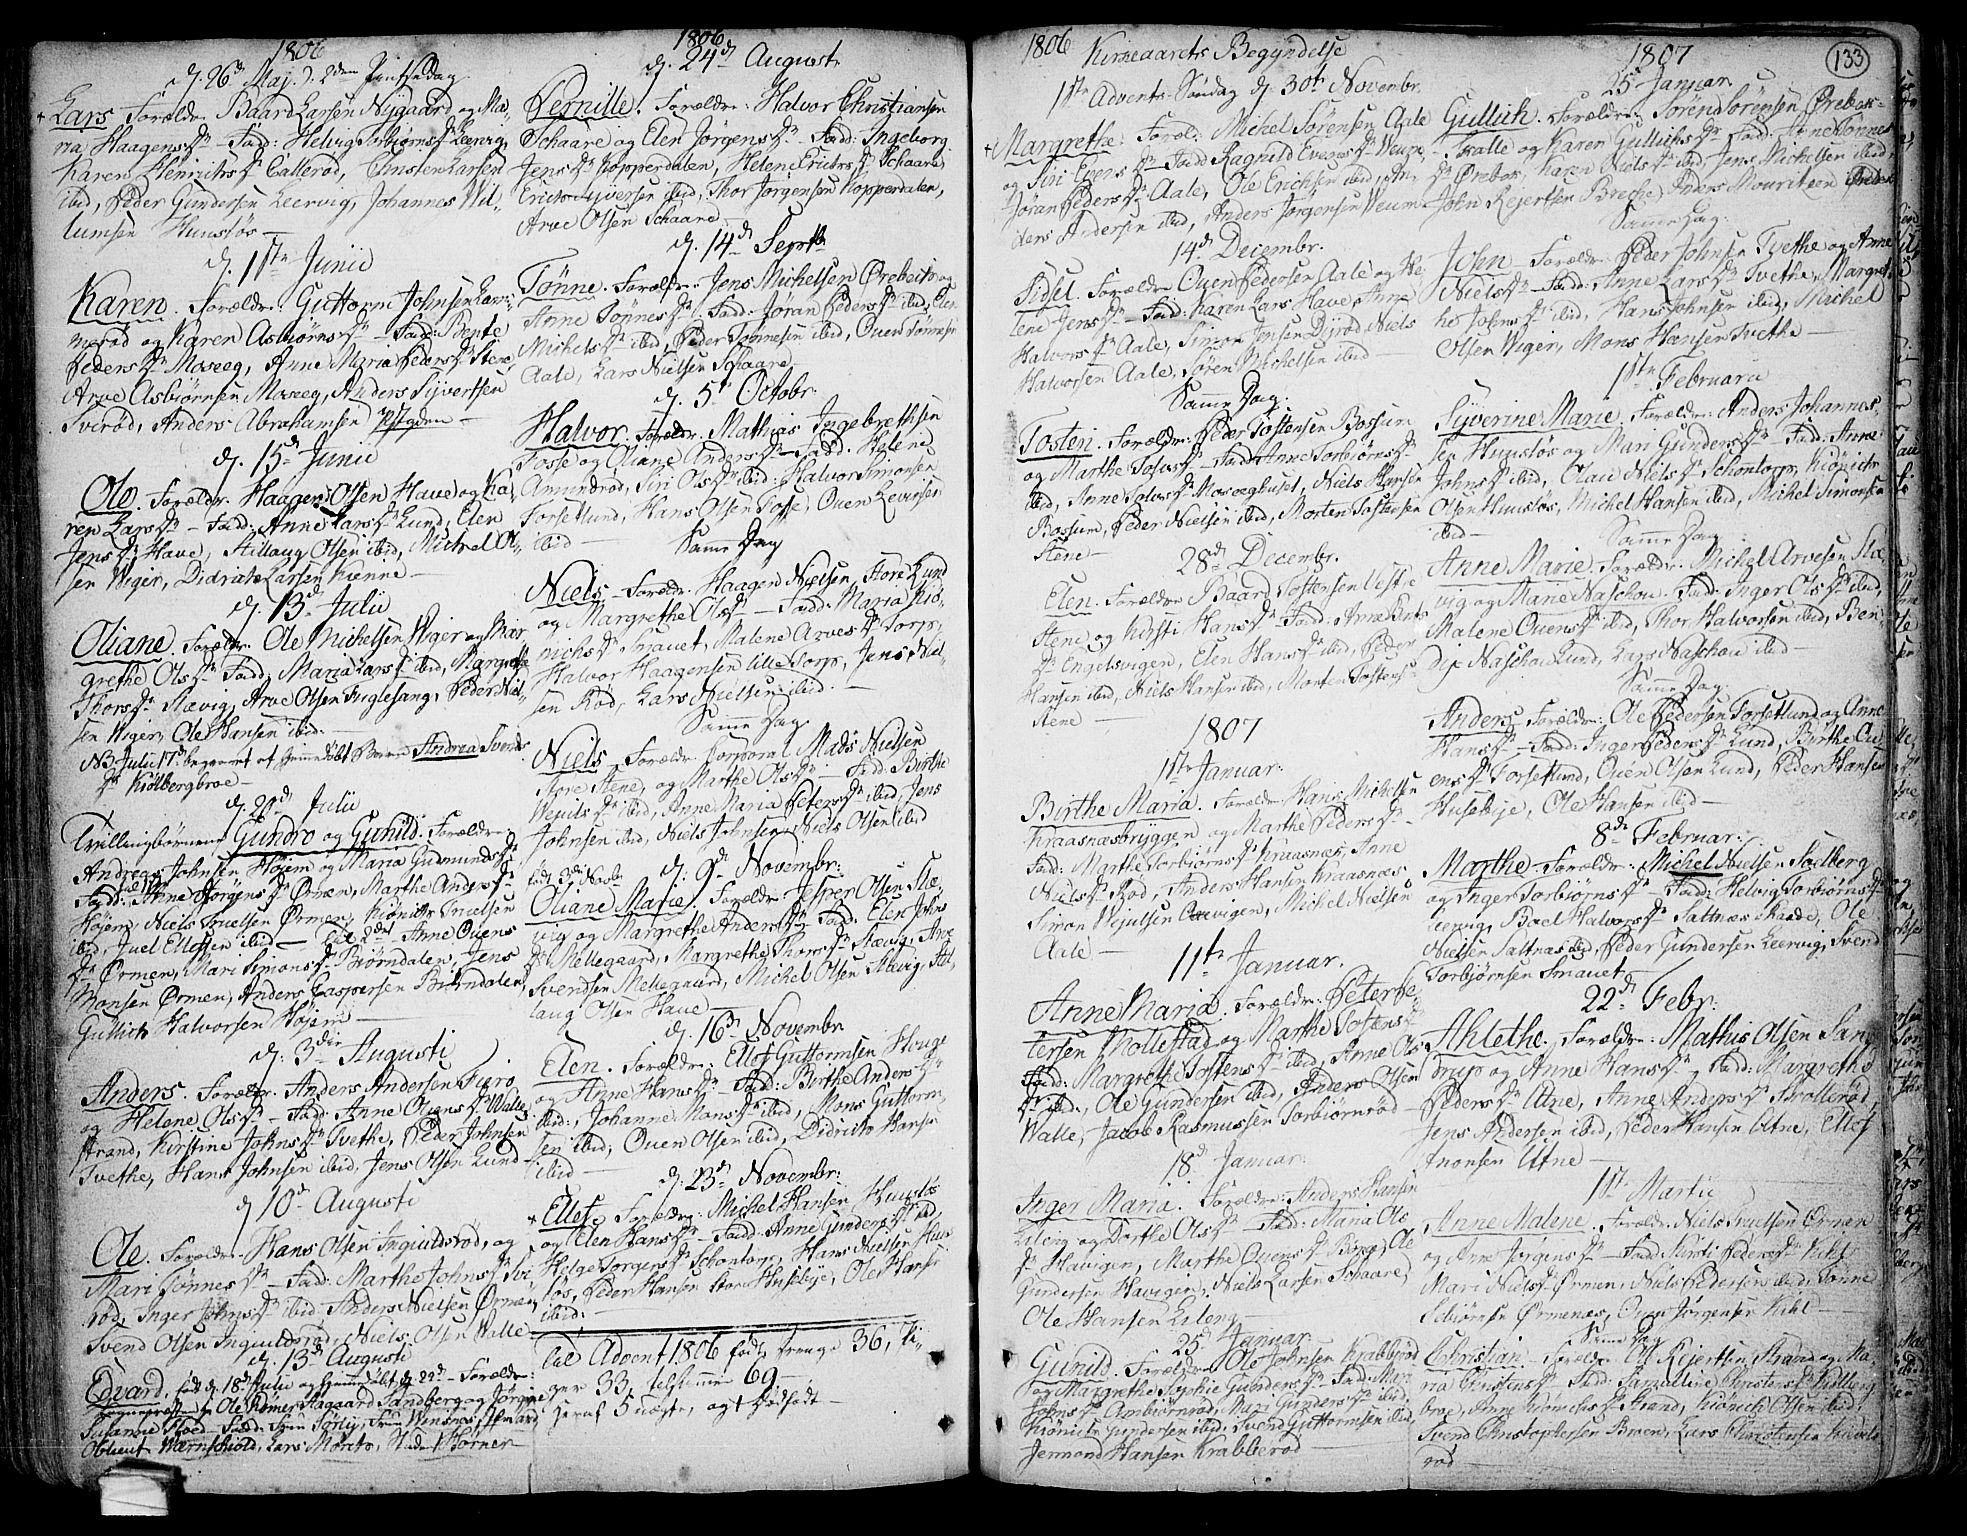 1806
d. 26de Maj. d. 2den Pintsedag
+ Lars Forældr: Baard Larsen Nygaard og Ma-
ria Haagens Dr — Fadd: Helvig Torbiørns Dr Leervig,
Karen Henrichs Dr Callerød, Christen Larsen
ibid, Peder Gundersen Leervig, Johannes Wil-
lumsen Hunstøs —
d. 1ste Junii
Karen. Forældr: Guttorm Johnsen
merød og Karen Asbiørns Dr — Fadd: Bente
Peders Dr Moseeg, Anne Maria Peders Dr Steene,
Arve Asbiørnsen Moseeg, Anders Syvertsen
Tvirød, Anders Abrahamsen —
d. 15de Junii
Ole. Forældr. Haagen Olsen Have og Ka-
ren Lars Dr — Fadd: Anne Lars Dr Lund, Elen
Jens Dr Have, Stillaug Olsen ibid, Michel Ol-
sen Wiger, Didrich Larsen Kienne —
d. 13de Julii
Oliane. Forældr. Ole Michelsen Wiger og Mar-
grethe Ols Dr Fadd: Maria Lars Dr ibid, Margrethe
Thors Dr Slævig, Arve Olsen Fuglesang, Peder Niel-
sen Wiger, Ole Hansen ibid. —
Julii 17de begravet et hjemmedøbt Barn Andrea Svends
Dr Kiølbergbroe —
d. 20de Julii
Tvillingbørnene Gundro og Gunild. Forældre
Andreas Johnsen Højem og Maria Gudmunds Dr
Fadd: Anne Jørgens Dr Ørmen, Marthe Anders Dr
Højem, Niels Truelsen Ørmen, Kiønich Truelsen
ibid, Juel Ellefsen ibid — til 2det — Anne Ouens
Dr Ørmen, Mari Simons Dr Biørndalen, Jens
Monsen Ørmen, Anders Caspersen Biørndalen,
Gullich Halvorsen Højem —
d. 3die Augusti
Anders. Forældr. Anders Andersen Furo
og Helene Ols Dr — Fadd: Anne Ouens Dr Walle,
strand, Kirstine Johns Dr Tvethe, Peder Johnsen
Tvethe, Hans Johnsen ibid, Jens Olsen Lund —
d. 10de Augusti
Ole. Forældr. Hans Olsen Inguldsrød, og
Mari Tønnes Dr — Fadd: Marthe Johns Dr Tvi-
rød, Inger Johns Dr ibid, Anders Nielsen Ørmen,
Svend Olsen Inguldsrød, Niels Olsen Walle
d. 13de Augusti
Edvard, født d. 18de Julii og hjemmedøbt d. 22de — Forældre:
Ole Rømer Aagaard Sandberg og Jørgine
Susanne Floed Fadd:
Wærnschiold, Lars Møretø, Stud: Hørner —
1806
d. 24de August
Pernille. Forældre: Halvor Christiansen
Schaare og Elen Jørgens Dr — Fadd: Ingeborg
Jens Dr Kopperdalen, Helene Erichs Dr Schaare,
Erich Syversen ibid, Thor Jørgensen Kopperdalen,
Arve Olsen Schaare —
d. 14de Septbr
Tønne. Forældr: Jens Michelsen Ørebech og
Anne Tønnes Dr. Fadd: Jøran Peders Dr ibid, Elen
Michels Dr ibid, Peder Tønnesen ibid, Ouen Tønnesen
Aale, Lars Nielsen Schaare
d. 5te Octobr.
Halvor. Forældr. Mathias Ingebrethsen
Fosse og Oliane Anders Dr — Fadd. Helene
Amundrød, Siri Ols Dr ibid, Halvor Simonsen
Torsetlund, Hans Olsen Fosse, Ouen Levinsen
ibid —
Samme Dag
Niels — Forældr. Haagen Nielsen, Store Lund
og Margrethe Ols Dr — Fadd: Maria Kiø-
nichs Dr Smauet, Malene Arves Dr Torp,
Halvor Haagensen lille Torp, Jens Niel-
sen Rød, Lars Nielsen ibid. —
Samme Dag.
Niels. Forældre Corporal Mads Nielsen
Store Stene, og Marthe Ols Dr — Fadd Birthe
Wejuls Dr ibid, Anne Maria Peters Dr ibid Jens
Johnsen ibid, Niels Johnsen, Niels Olsen ibid
født 3de Novbr
d. 9de Novembr:
Oliane Marie. Forældr. Jesper Olsen Slæ-
vig og Margrethe Anders Dr. Fadd: Elen Johns
Dr Mellegaard, Margrethe Thors Dr Slævig, Arve
Svendsen Mellegaard, Michel Olsen Slævig, Stil-
laug Olsen Have —
d. 16de Novembr
Elen. Forældr. Ellef Guttormsen Houge
og Anne Hans Dr — Fadd: Birthe Anders Dr
ibid, Johanne Mons Dr ibid, Mons Guttorm-
sen ibid, Ouen Olsen ibid, Didrich Hansen
ibid —
d. 23de Novembr:
+ Ellef. Forældr: Michel Hansen Hunstøs
og Elen Hans Dr — Fadd: Anne Gunders Dr ibid,
Helge Torgers Dr Schontorp, Hans Nielsen Huns-
tøs, Peder Hansen store Husebye, Ole Hansen
ibid.
Til Advent 1806 født drenge 36, Pi-
ger 33, tilsammen 69 —
heraf 5 uægte, og 1 dødfødt —
1806 Kirkeaarets Begyndelse
1ste Advents-Søndag d. 30te Novembr.
+ Margrethe. Foræl: Michel Sørensen Aale
og Siri Evens Dr — Fadd Ragnild Evens Dr Veum,
Jøran Peders Dr Aale, Ole Erichsen ibid, An-
ders Andersen ibid, Anders Jørgensen Veum
14de Decembr.
Sidsel. Forældre Ouen Pedersen Aale og He-
lene Jens Dr — Fadd: Karen Lars Dr Have, Anne
Halvors Dr Aale, Simon Jensen Dyrød, Niels
Halvorsen Aale, Søren Michelsen ibid —
Samme Dag:
Tosten. Forældr: Peder Tostensen Bossum
og Marthe Tolvs Dr — Fadd: Anne Torbiørns Dr
ibid, Anne Tolvs Dr Moseeghuset, Niels Hansen
Bossum, Peder Nielsen ibid, Morten Tostensen
Stene —
28de Decembr.
Elen. Forældre Baard Tostensen Vestre
Stene, og Kirsti Hans Dr — Fadd: Anne
Dr Engelsvigen, Elen Hans Dr ibid, Peder
Hansen ibid, Niels Hansen ibid, Morten Tostensen
Stene —
1807
1ste Januar.
Birthe Maria. Forældr. Hans Michelsen
Kraasnæsbryggen og Marthe Peders Dr —
Fadd: Marthe Torbiørns Dr Kraasnæs, Anne
Niels Dr Rød, Anders Hansen Kraasnæs
Simon Wejulsen vigen, Michel Nielsen
Aale —
11te Januar.
Anne Maria. Forældr: Peter Pe-
tersen Mollestad og Marthe Tostens Dr
Fadd: Margrethe Tostens Dr ibid, Anne Ols
Dr ibid, Ole Gundersen ibid, Anders Olsen
Walle, Jacob Rasmussen Torbiørnrød —
18de Januar:
Inger Maria. Forældre: Anders Hansen
Lileng og Dorthe Ols Dr — Fadd: Maria Ols
Dr Havigen, Marthe Ouens Dr Borge, Ole
Gundersen Havigen, Niels Larsen Schaare,
Ole Hansen Lileng —
25de Januar
Gunild. Forældre Ole Johnsen Krabbrød
og Margrethe Sophie Gunders Dr — Fadd: Mari
Johns Dr Ambiørnrød, Mari Gunders Dr ibid,
Kiønich Gundersen ibid, Svend Guttormsen ibid,
Jermond Hansen Krabberød
1807
133
25de Januar
Gullich. Forældre: Søren Sørensen Ørebek-
Skalle og Karen Gullichs Dr Fadd: Anne Tønnes
Dr Ørebek, Karen Niels Dr ibid, Jens Michelsen ibid,
John Rejertsen Brethe, Anders Mouritzen Ørebek
Samme Dag.
John Forældre: Peder Johnsen Tvethe og Anne
Niels Dr — Fadd: Anne Lars Dr Tvethe, Margret-
he Johns Dr ibid, Hans Johnsen ibid, Michel
Olsen Wiger, Mons Hansen Tvethe —
1ste Februarii
Syverine Marie. Forældre: Anders Johannes-
sen Hunstøs og Mari Gunders Dr Fadd: Anne
Johns Dr ibid, Olau Niels Dr Schontorp, Kiønich
Olsen Hunstøs, Michel Hansen ibid, Michel Simonsen
ibid —
Samme Dag
Anne Marie. Forældr: Michel Arvesen Slæ-
vig og Marie Naschou. Fadd: Inger Ols Dr ibid,
Malene Ouens Dr ibid, Thor Halvorsen ibid, Ben-
dix Naschou Lund, Lars Naschou ibid —
Samme Dag:
Anders Forældre: Ole Pedersen Torsetlund og Anne
Hans Dr — Fadd: Inger Peders Dr Lund, Birthe Ou-
ens Dr Torsetlund, Ouen Olsen Lund, Peder Hansen
Husebije, Ole Hansen ibid —
8de Februar:
Marthe. Forældre: Michel Nielsen Soelberg
og Inger Torbiørns Dr — Fadd: Helvig Torbiørns Dr
Leervig, Boel Halvors Dr Saltnæs Skaade, Ole
Nielsen Saltnæs ibid, Peder Gundersen Leervig, Svend
Torbiørnsen Smauet —
22de Febr:
Ahlethe. Forældre: Mathis Olsen San-
drup og Anne Hans Dr, Fadd: Margrethe
Peders Dr Utne, Anne Anders Dr Brollerød,
Jens Andersen ibid, Peder Hansen Utne, Ellef
Utne —
1ste Martii
Anne Malene. Foræld: Niels Truelsen Ørmen
og Anne Jørgens Dr — Fadd: Kirsti Peders Dr Kihl
Mari Niels Dr Ørmen, Niels Pedersen ibid, Tønne
Ørmenæs, Ouen Jørgensen Kihl —
Samme Dag
Christian — Forældre Ole Rejertsen Strand og Ma-
ria Christens Dr — Fadd: Christens Dr Kiølberg-
broe, Anne Kiønichs Dr Strand, Kiønich Olsen ibid,
Svend Christophersen Broen, Lars Christensen
rød —